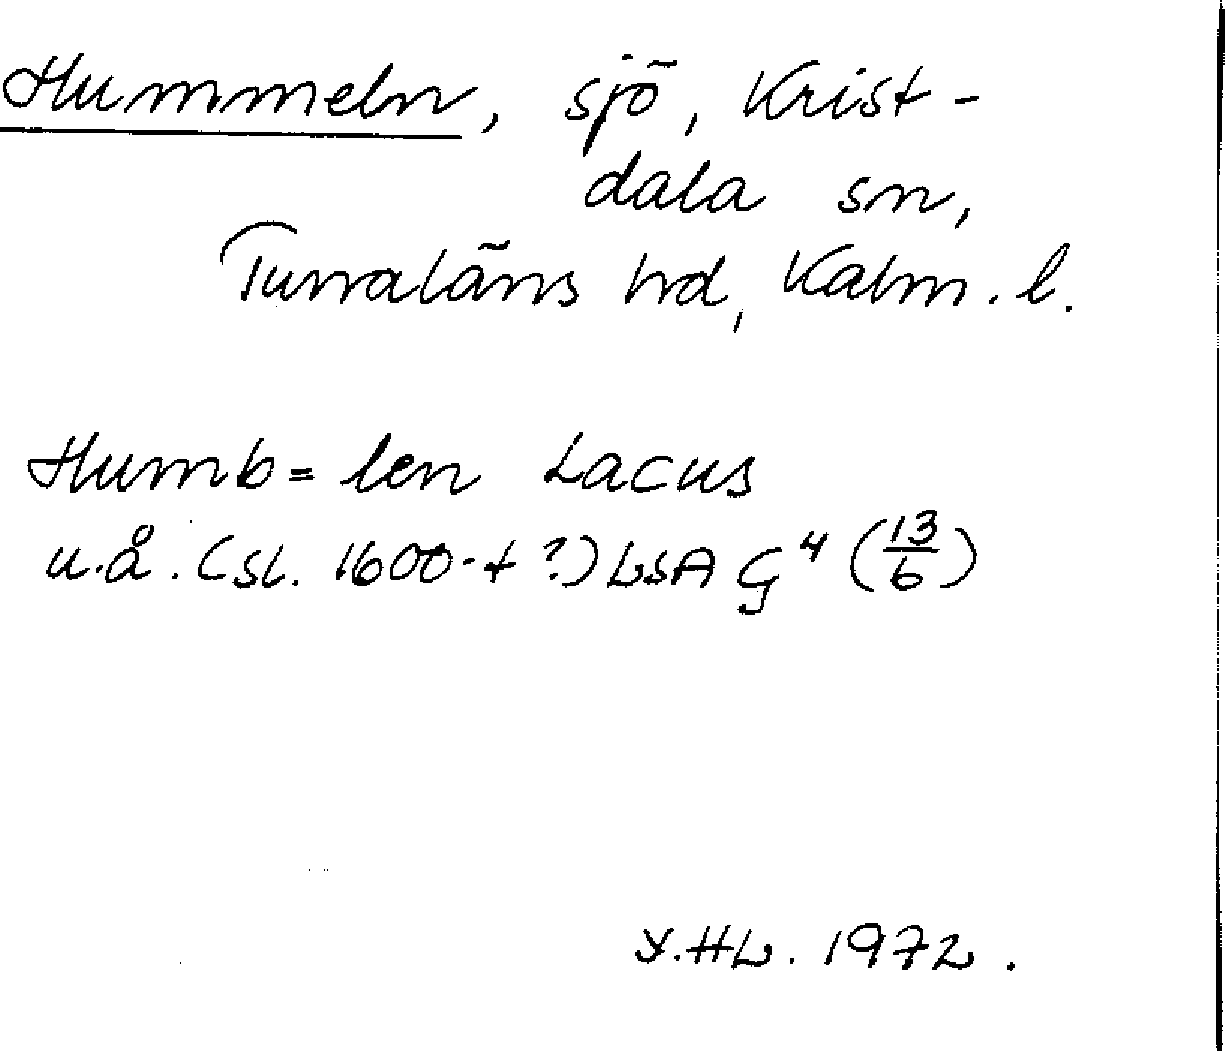 Hummeln, sjö, Krist-
dala sn,
Tunaläns hd, Kalm. l.
Humb=len Lacus
u.å. (sl. 1600-t ?) LSA G⁴ (13/6)
1972.